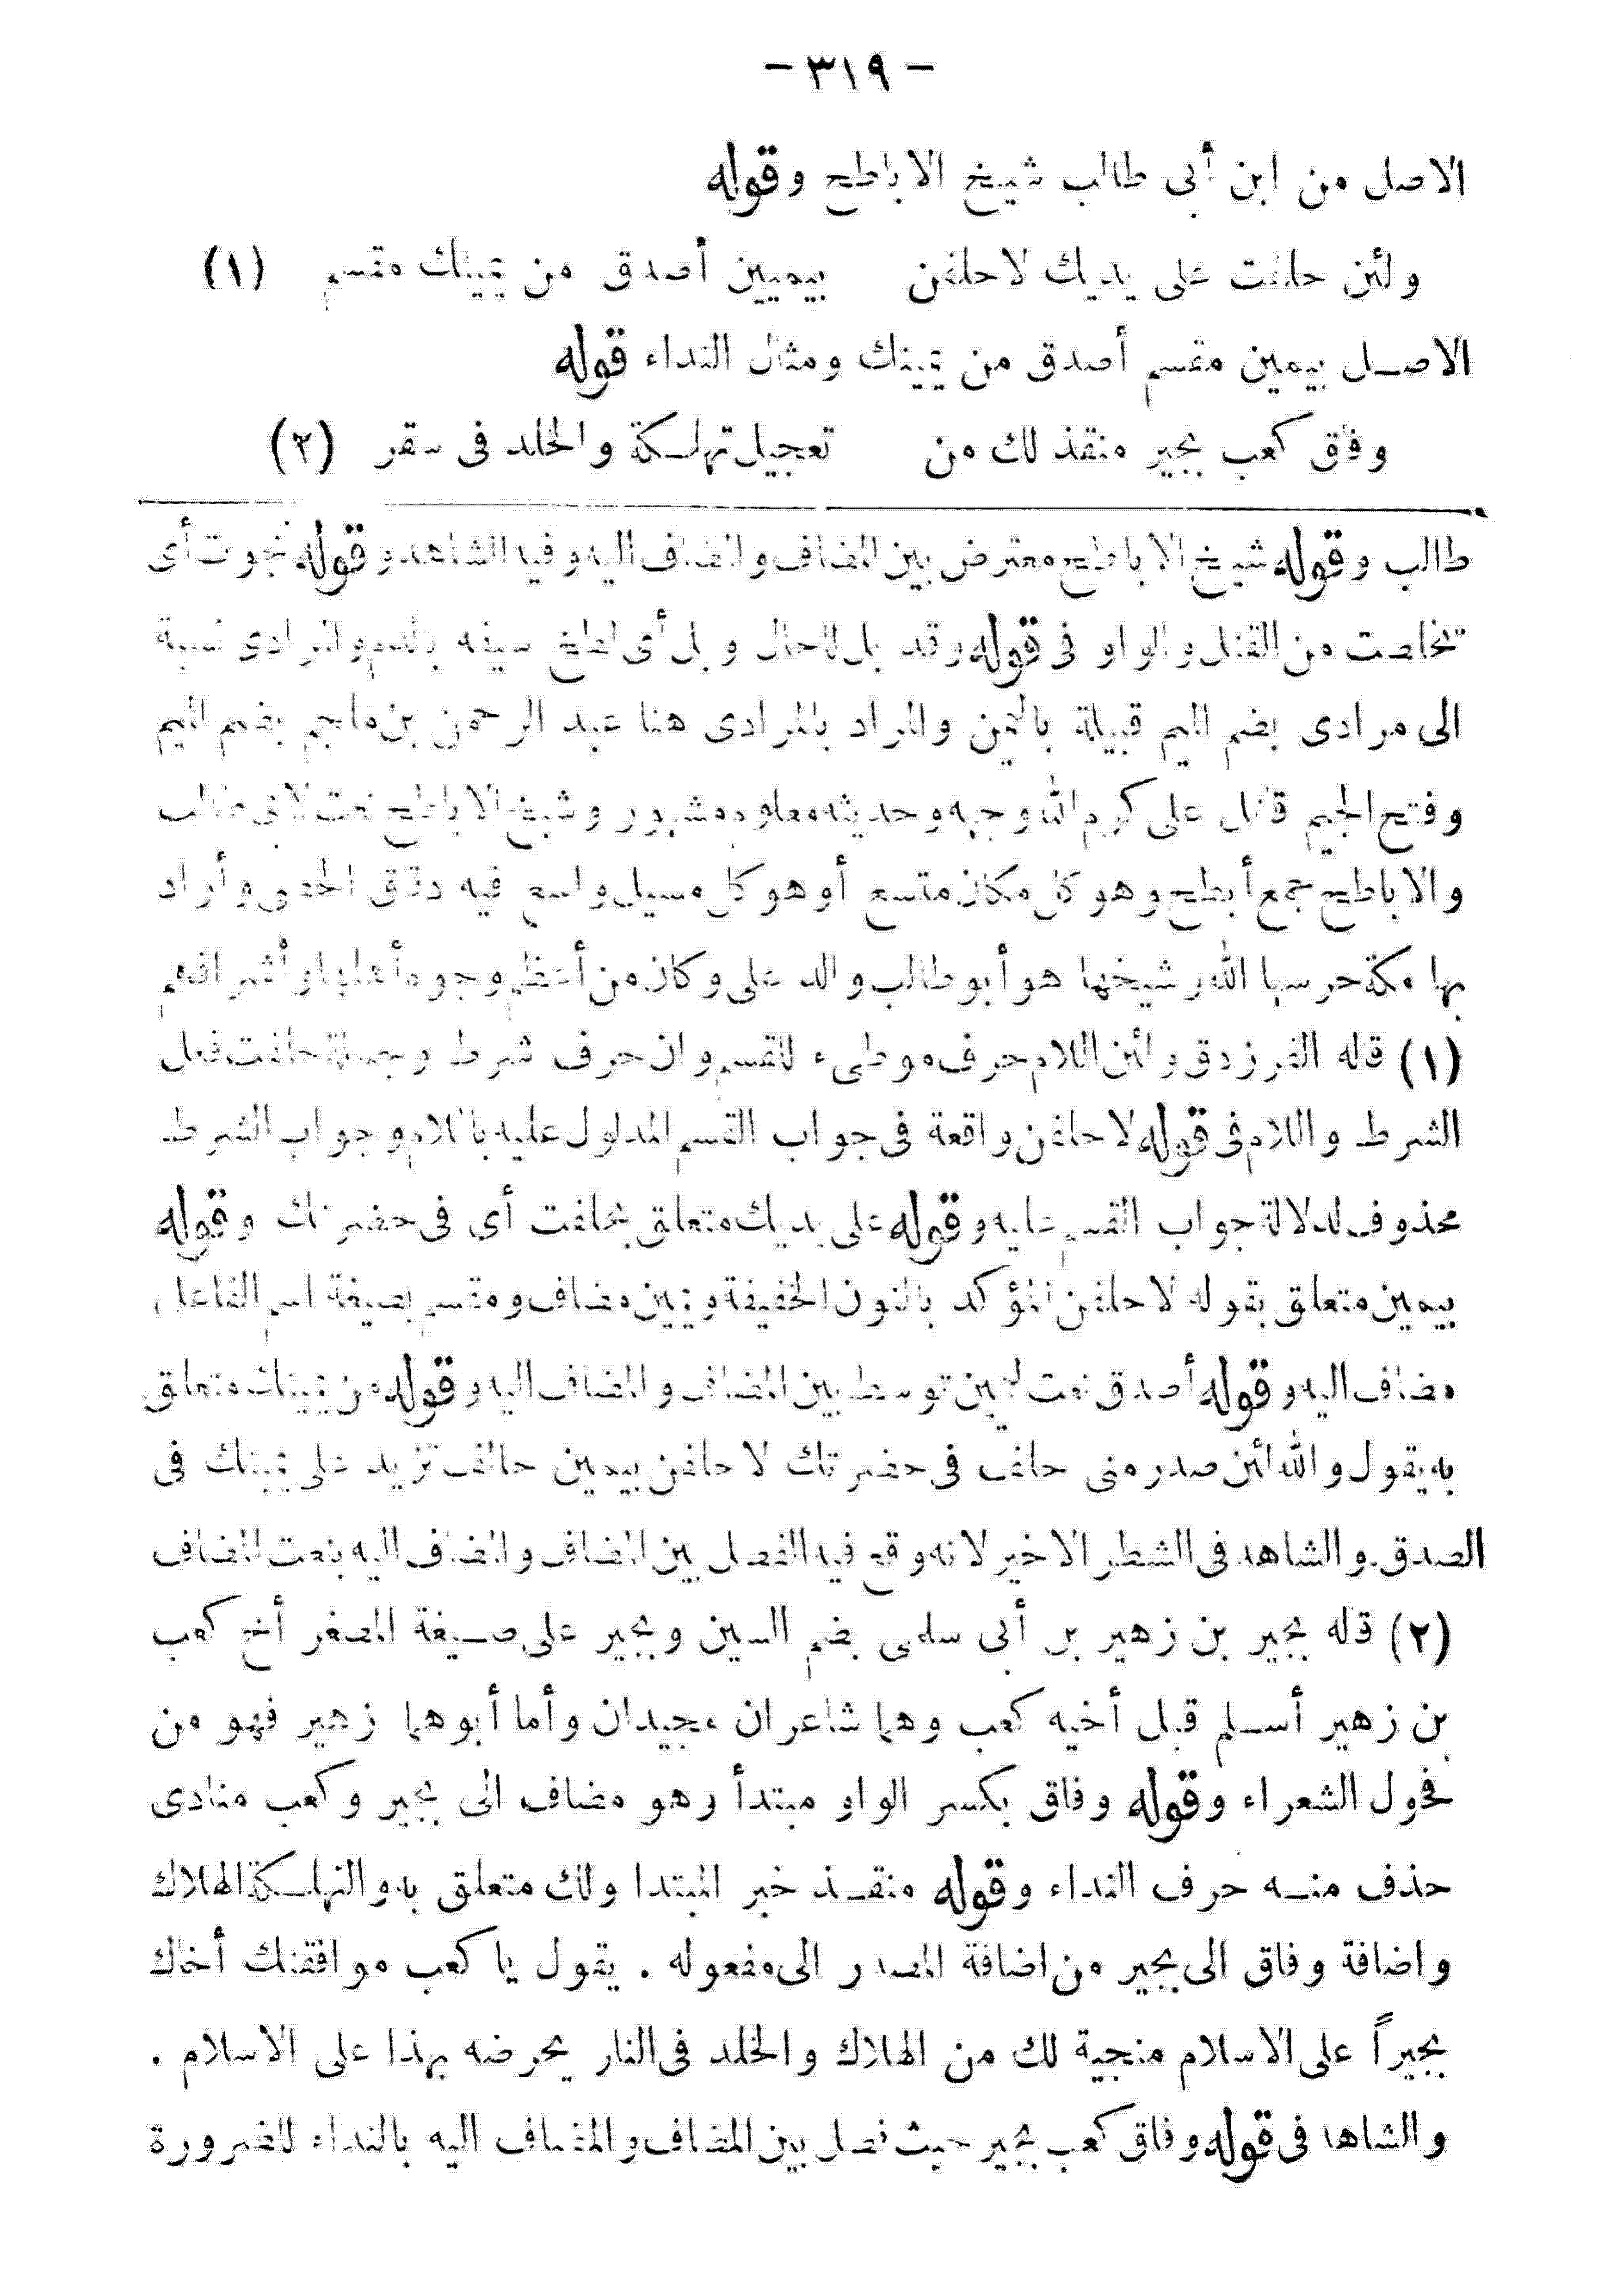 - ٣١٩ -
الاصل من ابن أبى طالب شيخ الاباطح وقوله
ولئن حلفت على يديك لاحلفن بيميين أصدق من يمينك مقسم (١)
الاصـل بيمين مقسم أصدق من يمينك ومثال النداء قوله
وفاق كعب بجير منقذ لك من تعجيل تهلـكة والخلد فى سقر (٢)
طالب وقوله شيخ الاباطح معترض بين المضاف والمضاف اليه وفيه الشاهد وقوله نجوت أى
تخلصت من القتل والواو فى قوله وقد بل للحال وبل أى لطخ سيفه بالدم والمرادى نسبة
الى مرادى بضم الميم قبيلة باليمن والمراد بالمرادى هنا عبد الرحمن بن ملجم بضم الميم
وفتح الجيم قاتل على كرم الله وجهه وحديثه معلوم مشهور وشيخ الاباطح نعت لابى طالب
والاباطح جمع أبطح وهو كل مكان متسع أو هو كل مسيل واسع فيه دقاق الحصى وأراد
بها مكة حرسها الله وشيخها هو أبو طالب والد على وكان من أعظم وجوه أهلها وأشرافهم
(١) قاله الفرزدق ولئن اللام حرف موطىء للقسم وان حرف شرط وجملة حلفت فعل
الشرط واللام فى قوله لاحلفن واقعة فى جواب القسم المدلول عليه باللام وجواب الشرط
محذوف لدلالة جواب القسم عليه وقوله على يديك متعلق بحلفت أى فى حضرتك وقوله
بيمين متعلق بقوله لاحلفن المؤكد بالنون الخفيفة ويمين مضاف ومقسم بصيغة اسم الفاعل
مضاف اليه وقوله أصدق نعت ليمين توسط بين المضاف والمضاف اليه وقوله من يمينك متعلق
به يقول والله لئن صدر منى حلف فى حضرتك لاحلفن بيمين حالف تزيد على يمينك فى
الصدق. والشاهد فى الشطر الاخير لانه وقع فيه الفصل بين المضاف والمضاف اليه بنعت المضاف
(٢) قاله بجير بن زهير بن أبى سلمى بضم السين وبجير على صـيغة المصغر أخ كعب
بن زهير أسـلم قبل أخيه كعب وهما شاعران مجيدان وأما أبوهما زهير فهو من
فحول الشعراء وقوله وفاق بكسر الواو مبتدأ وهو مضاف الى بجير وكعب منادى
حذف منـه حرف النداء وقوله منقـذ خبر المبتدا ولك متعلق به والتهلـكة الهلاك
واضافة وفاق الى بجير من اضافة المصدر الى مفعوله . يقول يا كعب موافقتك أخاك
بجيراً على الاسلام منجية لك من الهلاك والخلد فى النار يحرضه بهذا على الاسلام .
والشاهد فى قوله وفاق كعب بجير حيث فصل بين المضاف والمضاف اليه بالنداء للضرورة